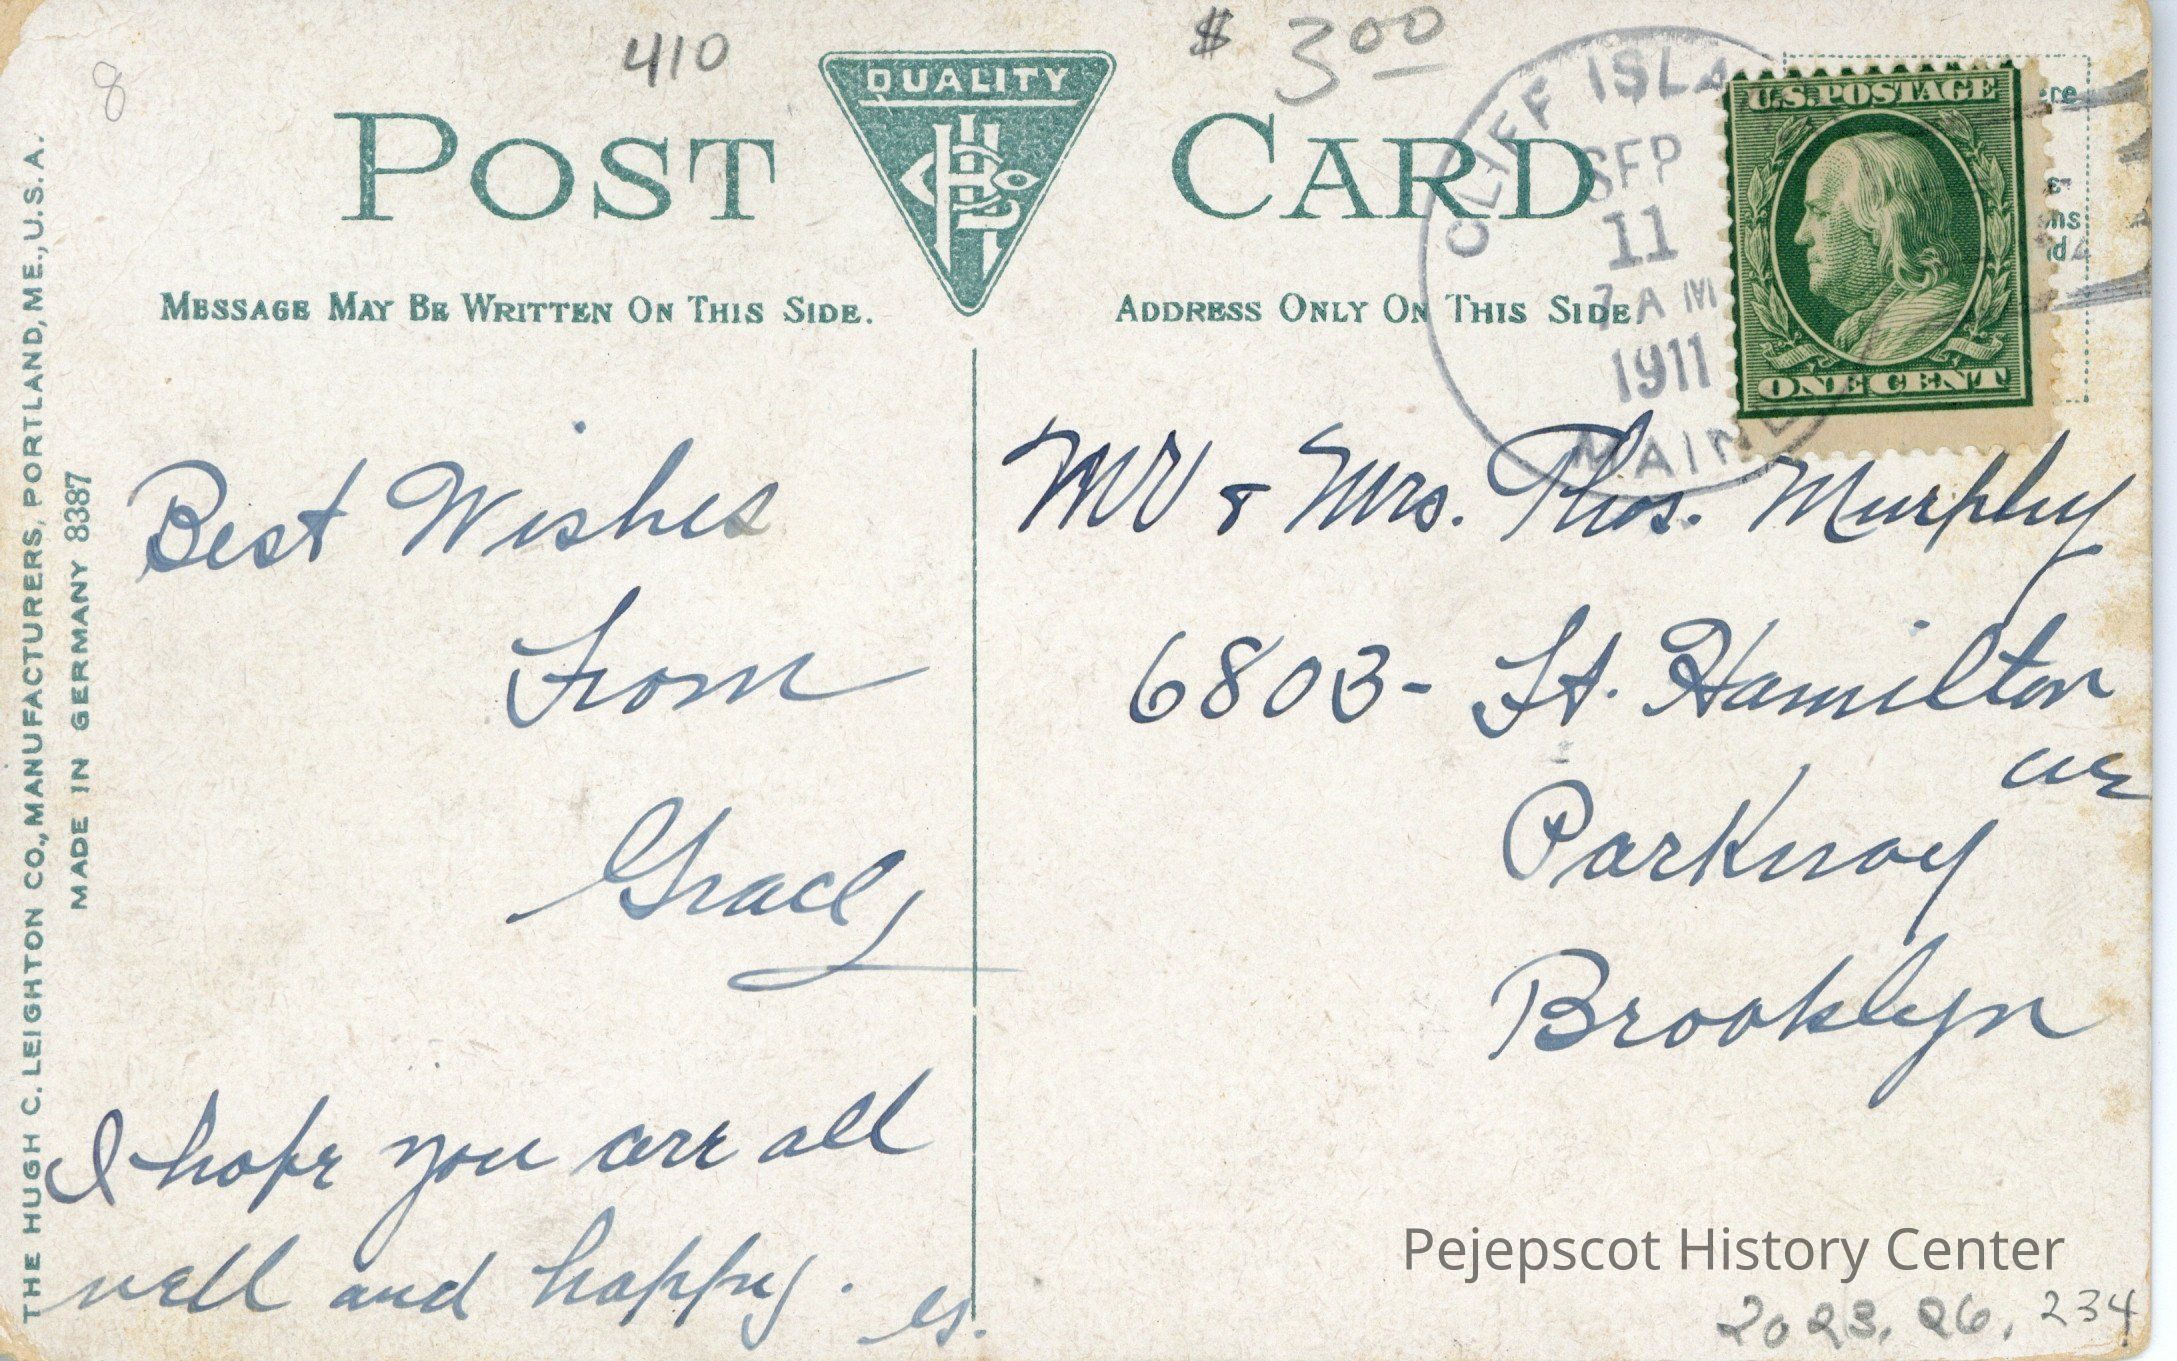 8
410
$ 3 00
POST CARD
QUALITY
MESSAGE MAY BE WRITTEN ON THIS SIDE.
ADDRESS ONLY ON THIS SIDE.
CLIFF ISLA
SEP
11
7 AM
1911
MAINE
U.S. POSTAGE
ONE CENT
THE HUGH C. LEIGHTON CO., MANUFACTURERS, PORTLAND, ME., U.S.A.
MADE IN GERMANY 8387
Best Wishes
From
Grace
I hope you are all
well and happy.
Mr & Mrs. Thos. Murphy
6803- Ft. Hamilton
Parkway
Brooklyn
Pejepscot History Center
2023.26.234